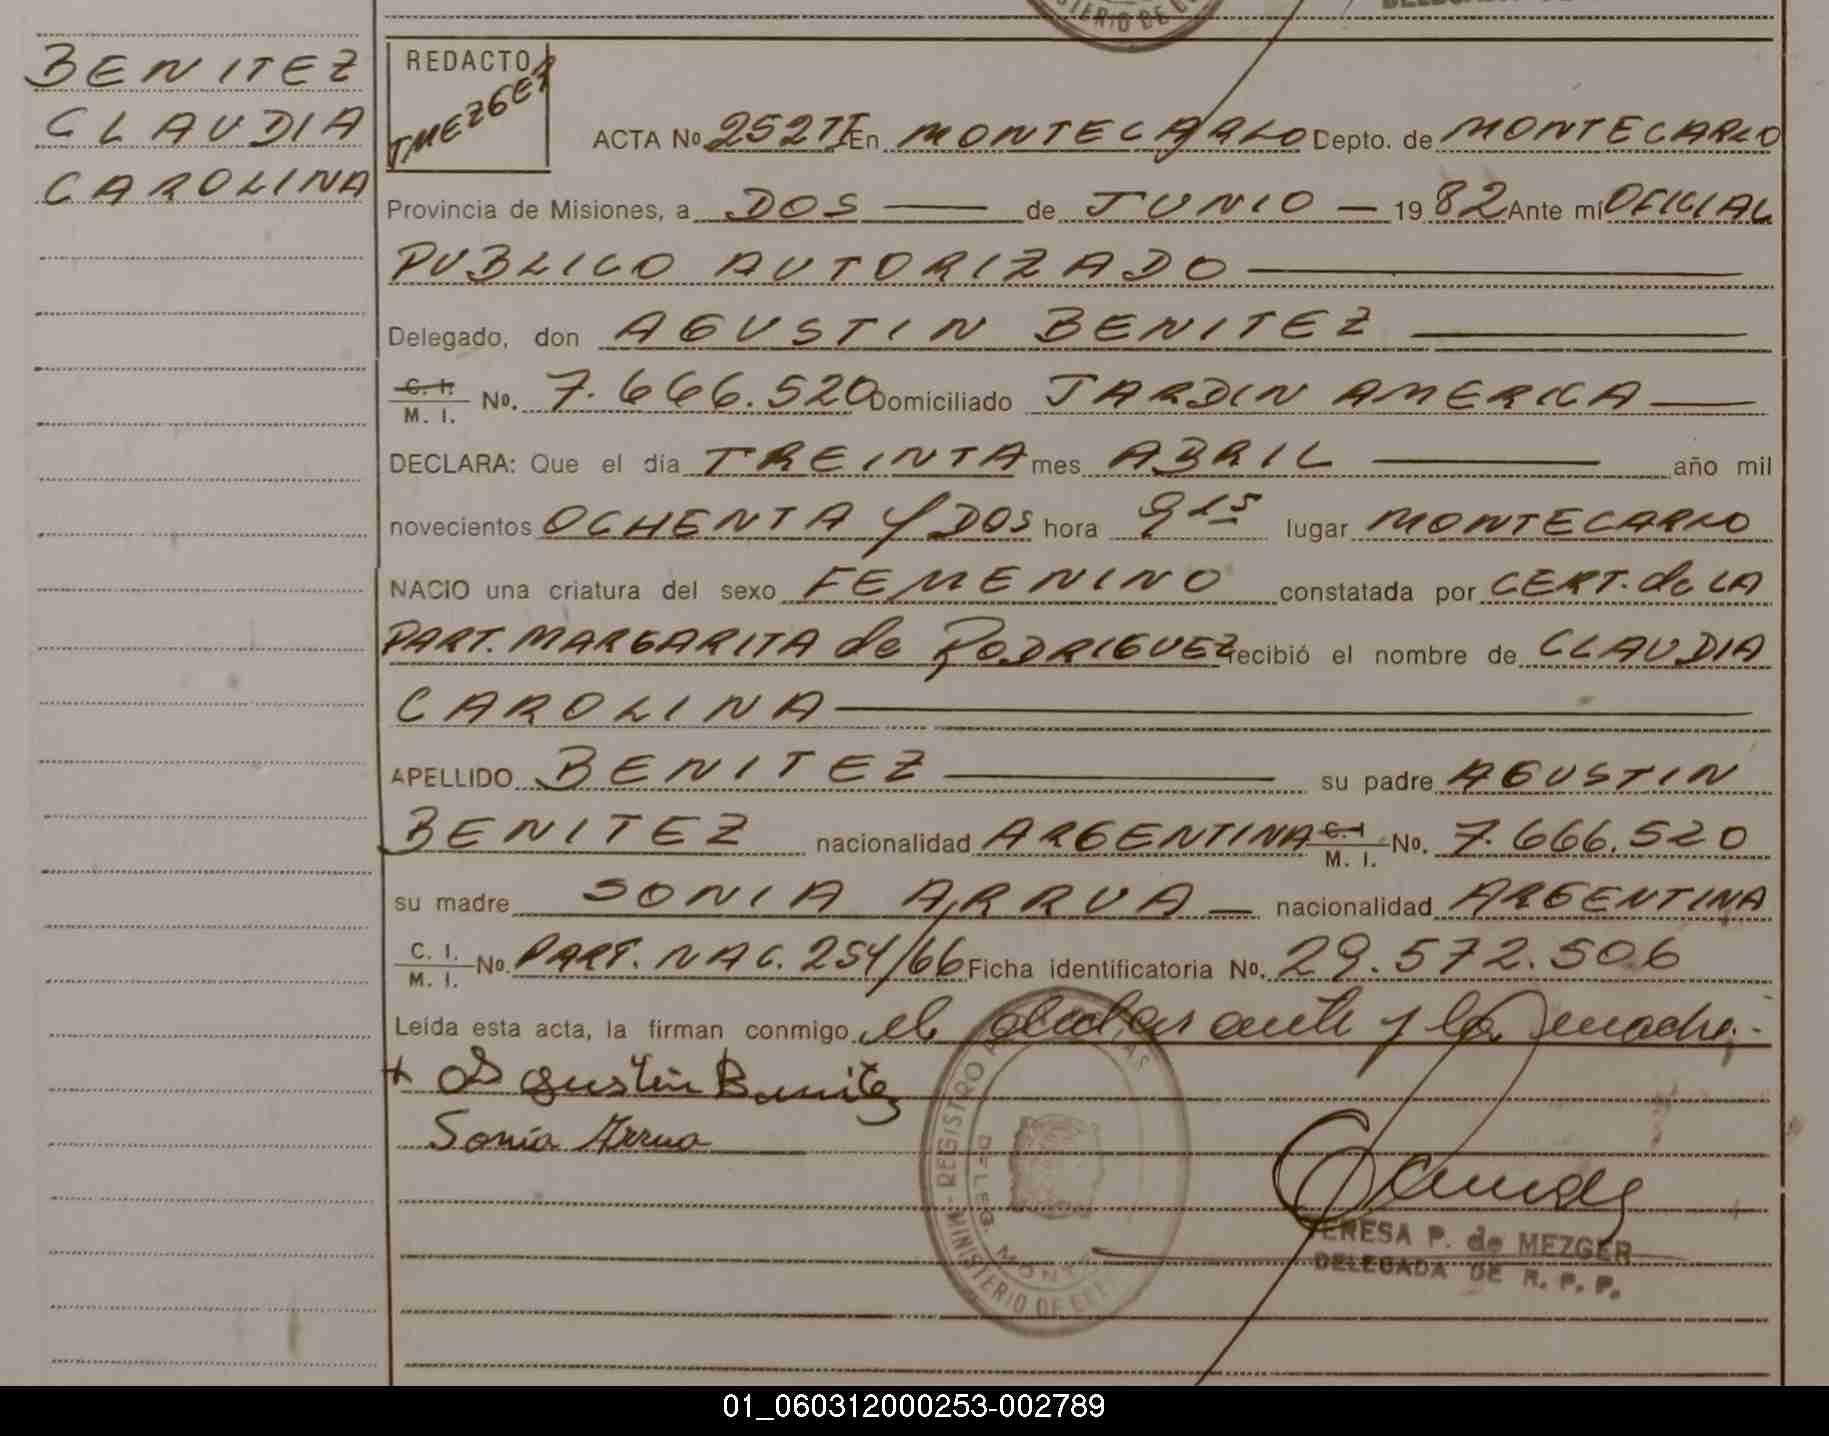 BENITEZ
CLAUDIA
CAROLINA
REDACTO
TMEZGER
ACTA No 252 TI En MONTECARLO Depto. de MONTECARLO
Provincia de Misiones, a DOS — de JUNIO — 19 82 Ante mí OFICIAL
PUBLICO AUTORIZADO
Delegado, don AGUSTIN BENITEZ
C. I. M. I. No. 7.666.520 Domiciliado JARDIN AMERICA
DECLARA: Que el día TREINTA mes ABRIL año mil
novecientos OCHENTA y DOS hora 9 hs lugar MONTECARLO
NACIO una criatura del sexo FEMENINO constatada por CERT. de LA
PART. MARGARITA de RODRIGUEZ recibió el nombre de CLAUDIA
CAROLINA
APELLIDO BENITEZ su padre AGUSTIN
BENITEZ nacionalidad ARGENTINA C. I M. I. No. 7.666.520
su madre SONIA ARRUA — nacionalidad ARGENTINA
C. I. M. I. No. PART. NAC. 254/66 Ficha identificatoria No. 29.572.506
Leída esta acta, la firman conmigo el declarante y la madre.-
Agustin Benitez
Sonia Arrua
REGISTRO
MINISTERIO DE
DELEG. MONTE
TERESA P. de MEZGER
DELEGADA DE R. P. P.
01_060312000253-002789